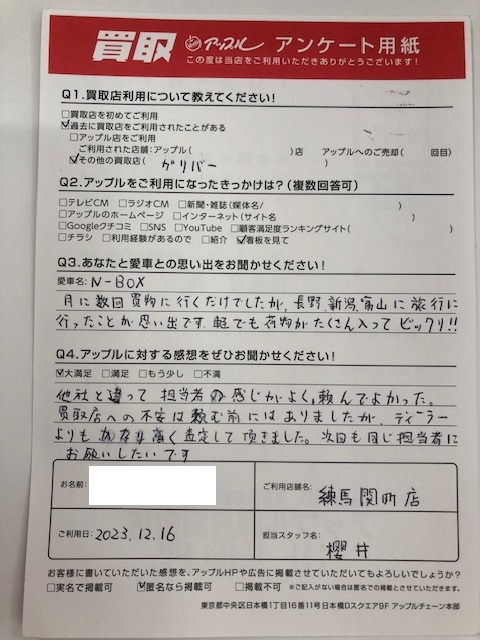 買取 アップル アンケート用紙
この度は当店をご利用いただきありがとうございます!
Q1.買取店利用について教えてください!
□買取店を初めてご利用
☑過去に買取店をご利用されたことがある
□アップル店をご利用
ご利用された店舗:アップル( )店 アップルへのご売却( 回目)
☑その他の買取店( ガリバー )
Q2.アップルをご利用になったきっかけは?(複数回答可)
□テレビCM □ラジオCM □新聞・雑誌(媒体名/ )
□アップルのホームページ □インターネット(サイト名 )
□Googleクチコミ □SNS □YouTube □顧客満足度ランキングサイト( )
□チラシ □利用経験があるので □紹介 ☑看板を見て
Q3.あなたと愛車との思い出をお聞かせください!
愛車名:N-BOX
月に数回買物に行くだけでしたが、長野、新潟、富山に旅行に
行ったことが思い出です。軽でも荷物がたくさん入ってビックリ!!
Q4.アップルに対する感想をぜひお聞かせください!
☑大満足 □満足 □もう少し □不満
他社と違って担当者の感じがよく、頼んでよかった。
買取店への不安は頼む前にはありましたが、ディーラー
よりもかなり高く査定して頂きました。次回も同じ担当者に
お願いしたいです
お名前:
ご利用店舗名:
練馬関町店
ご利用日:2023.12.16
担当スタッフ名:
櫻井
お客様に書いていただいた感想を、アップルHPや広告に掲載させていただいてもよろしいでしょうか?
□実名で掲載可 ☑匿名なら掲載可 □掲載不可 ※ご記入がない場合は匿名での掲載とさせていただきます。
東京都中央区日本橋1丁目16番11号日本橋Dスクエア9F アップルチェーン本部